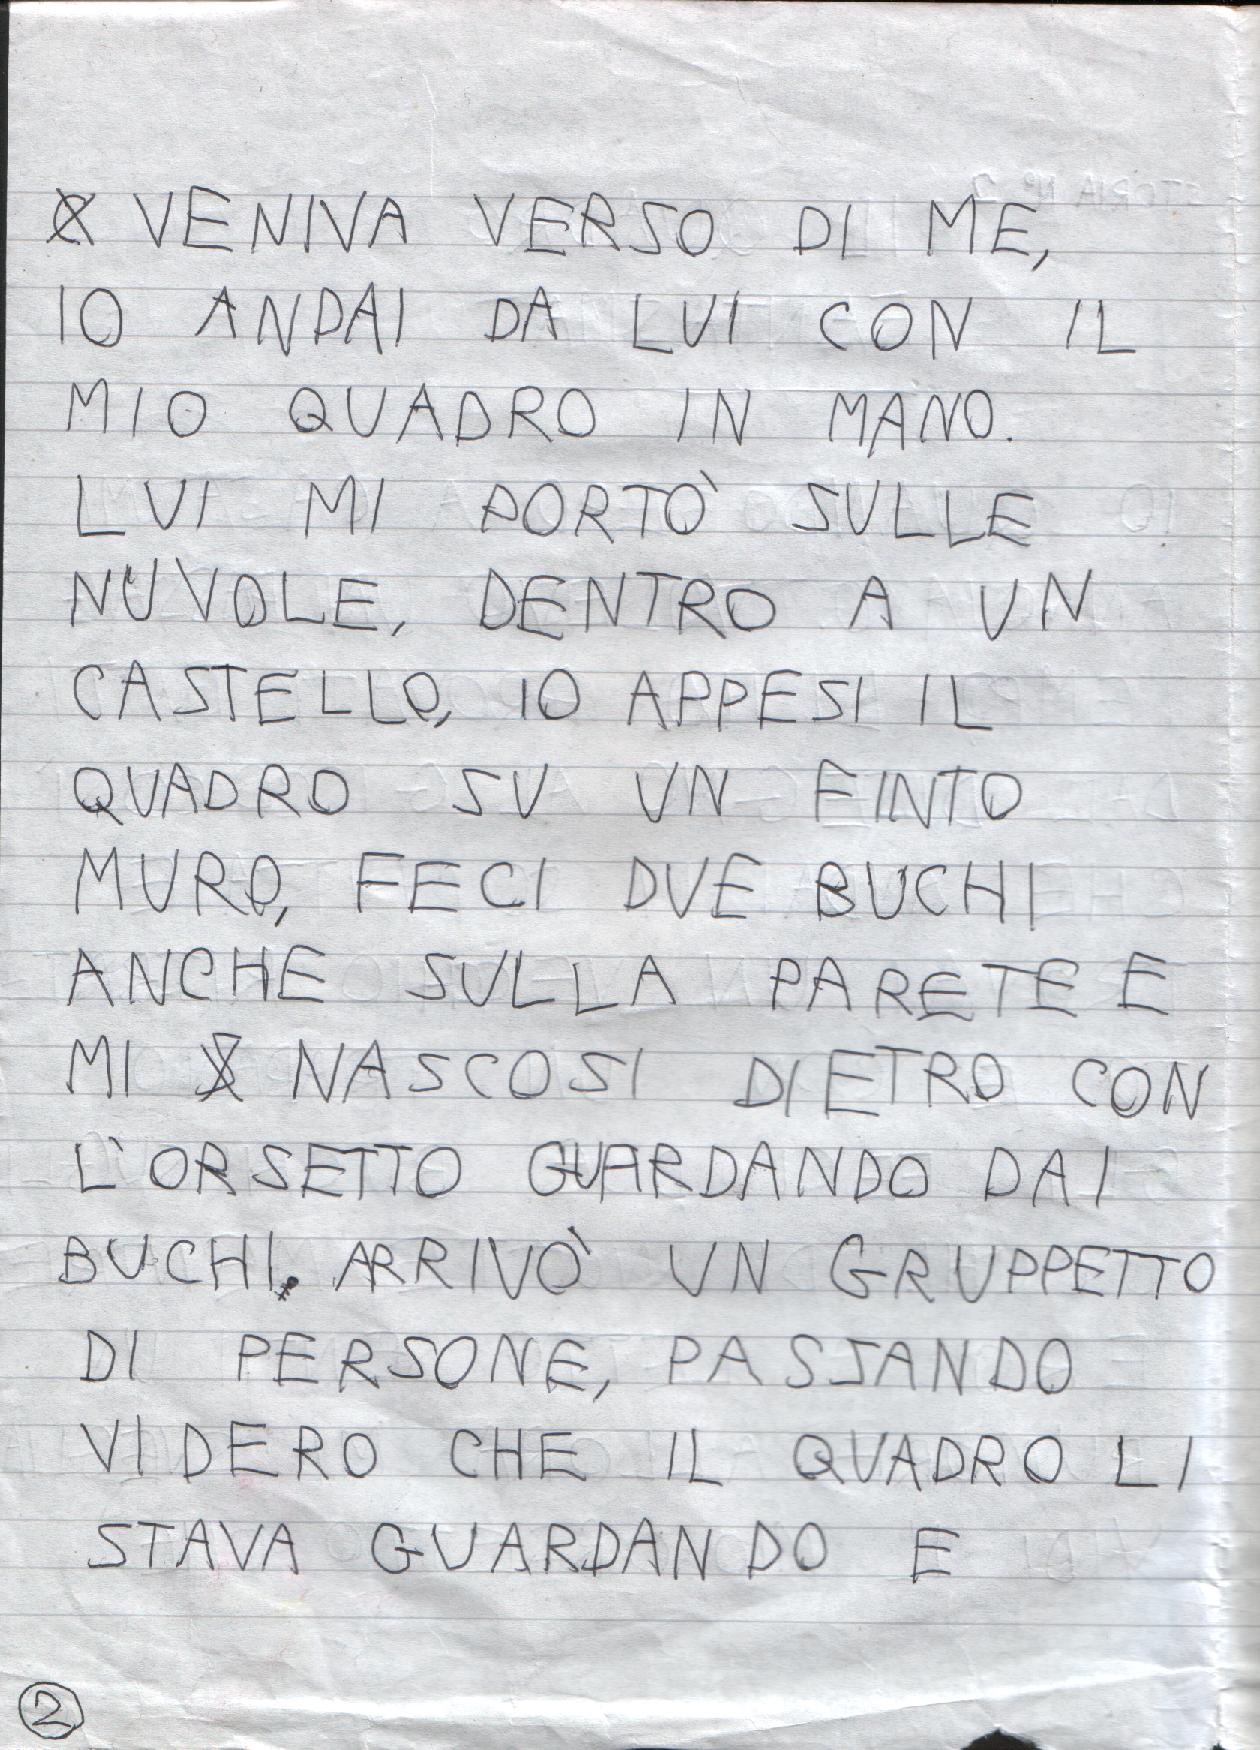 VENIVA VERSO DI ME,
IO ANDAI DA LUI CON IL
MIO QUADRO IN MANO.
LUI MI PORTÒ SULLE
NUVOLE, DENTRO A UN
CASTELLO, IO APPESI IL
QUADRO SU UN FINTO
MURO, FECI DUE BUCHI
ANCHE SULLA PARETE E
MI NASCOSI DIETRO CON
L'ORSETTO GUARDANDO DAI
BUCHI. ARRIVÒ UN GRUPPETTO
DI PERSONE, PASSANDO
VIDERO CHE IL QUADRO LI
STAVA GUARDANDO E
2